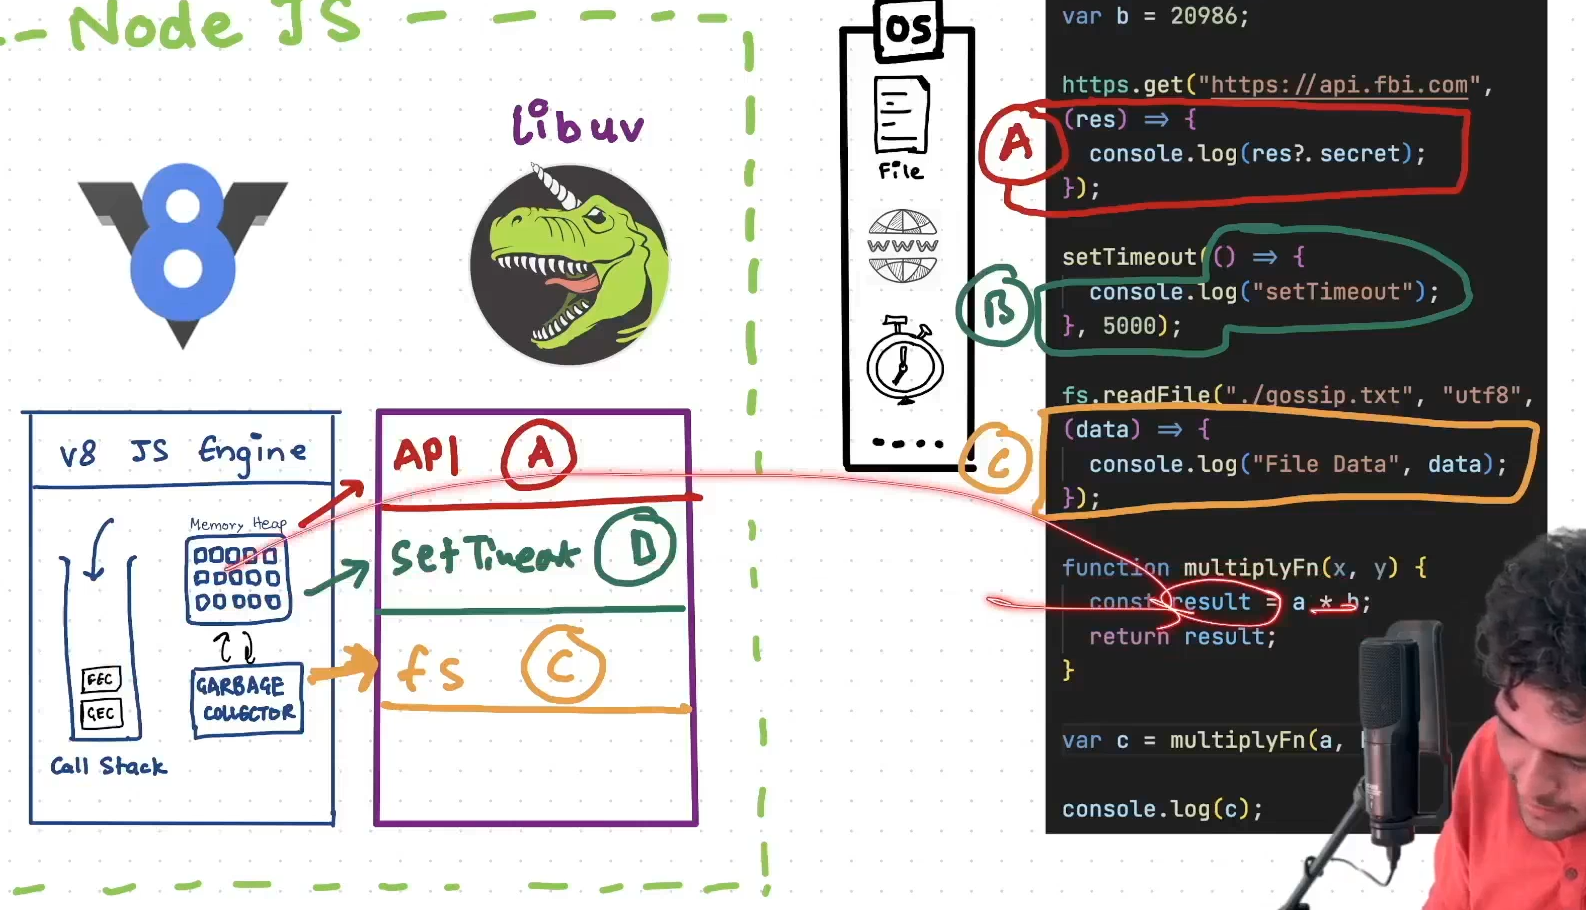 Node JS
Libuv
8
V8 JS Engine
Memory Heap
FEC
GEC
GARBAGE
COLLECTOR
Call Stack
API A
SetTimeout B
fs C
OS
File
WWW
A
B
C
var b = 20986;
https.get("https://api.fbi.com",
(res) => {
console.log(res?.secret);
});
setTimeout(() => {
console.log("setTimeout");
}, 5000);
fs.readFile("./gossip.txt", "utf8",
(data) => {
console.log("File Data", data);
});
function multiplyFn(x, y) {
const result = a * b;
return result;
}
var c = multiplyFn(a,
console.log(c);